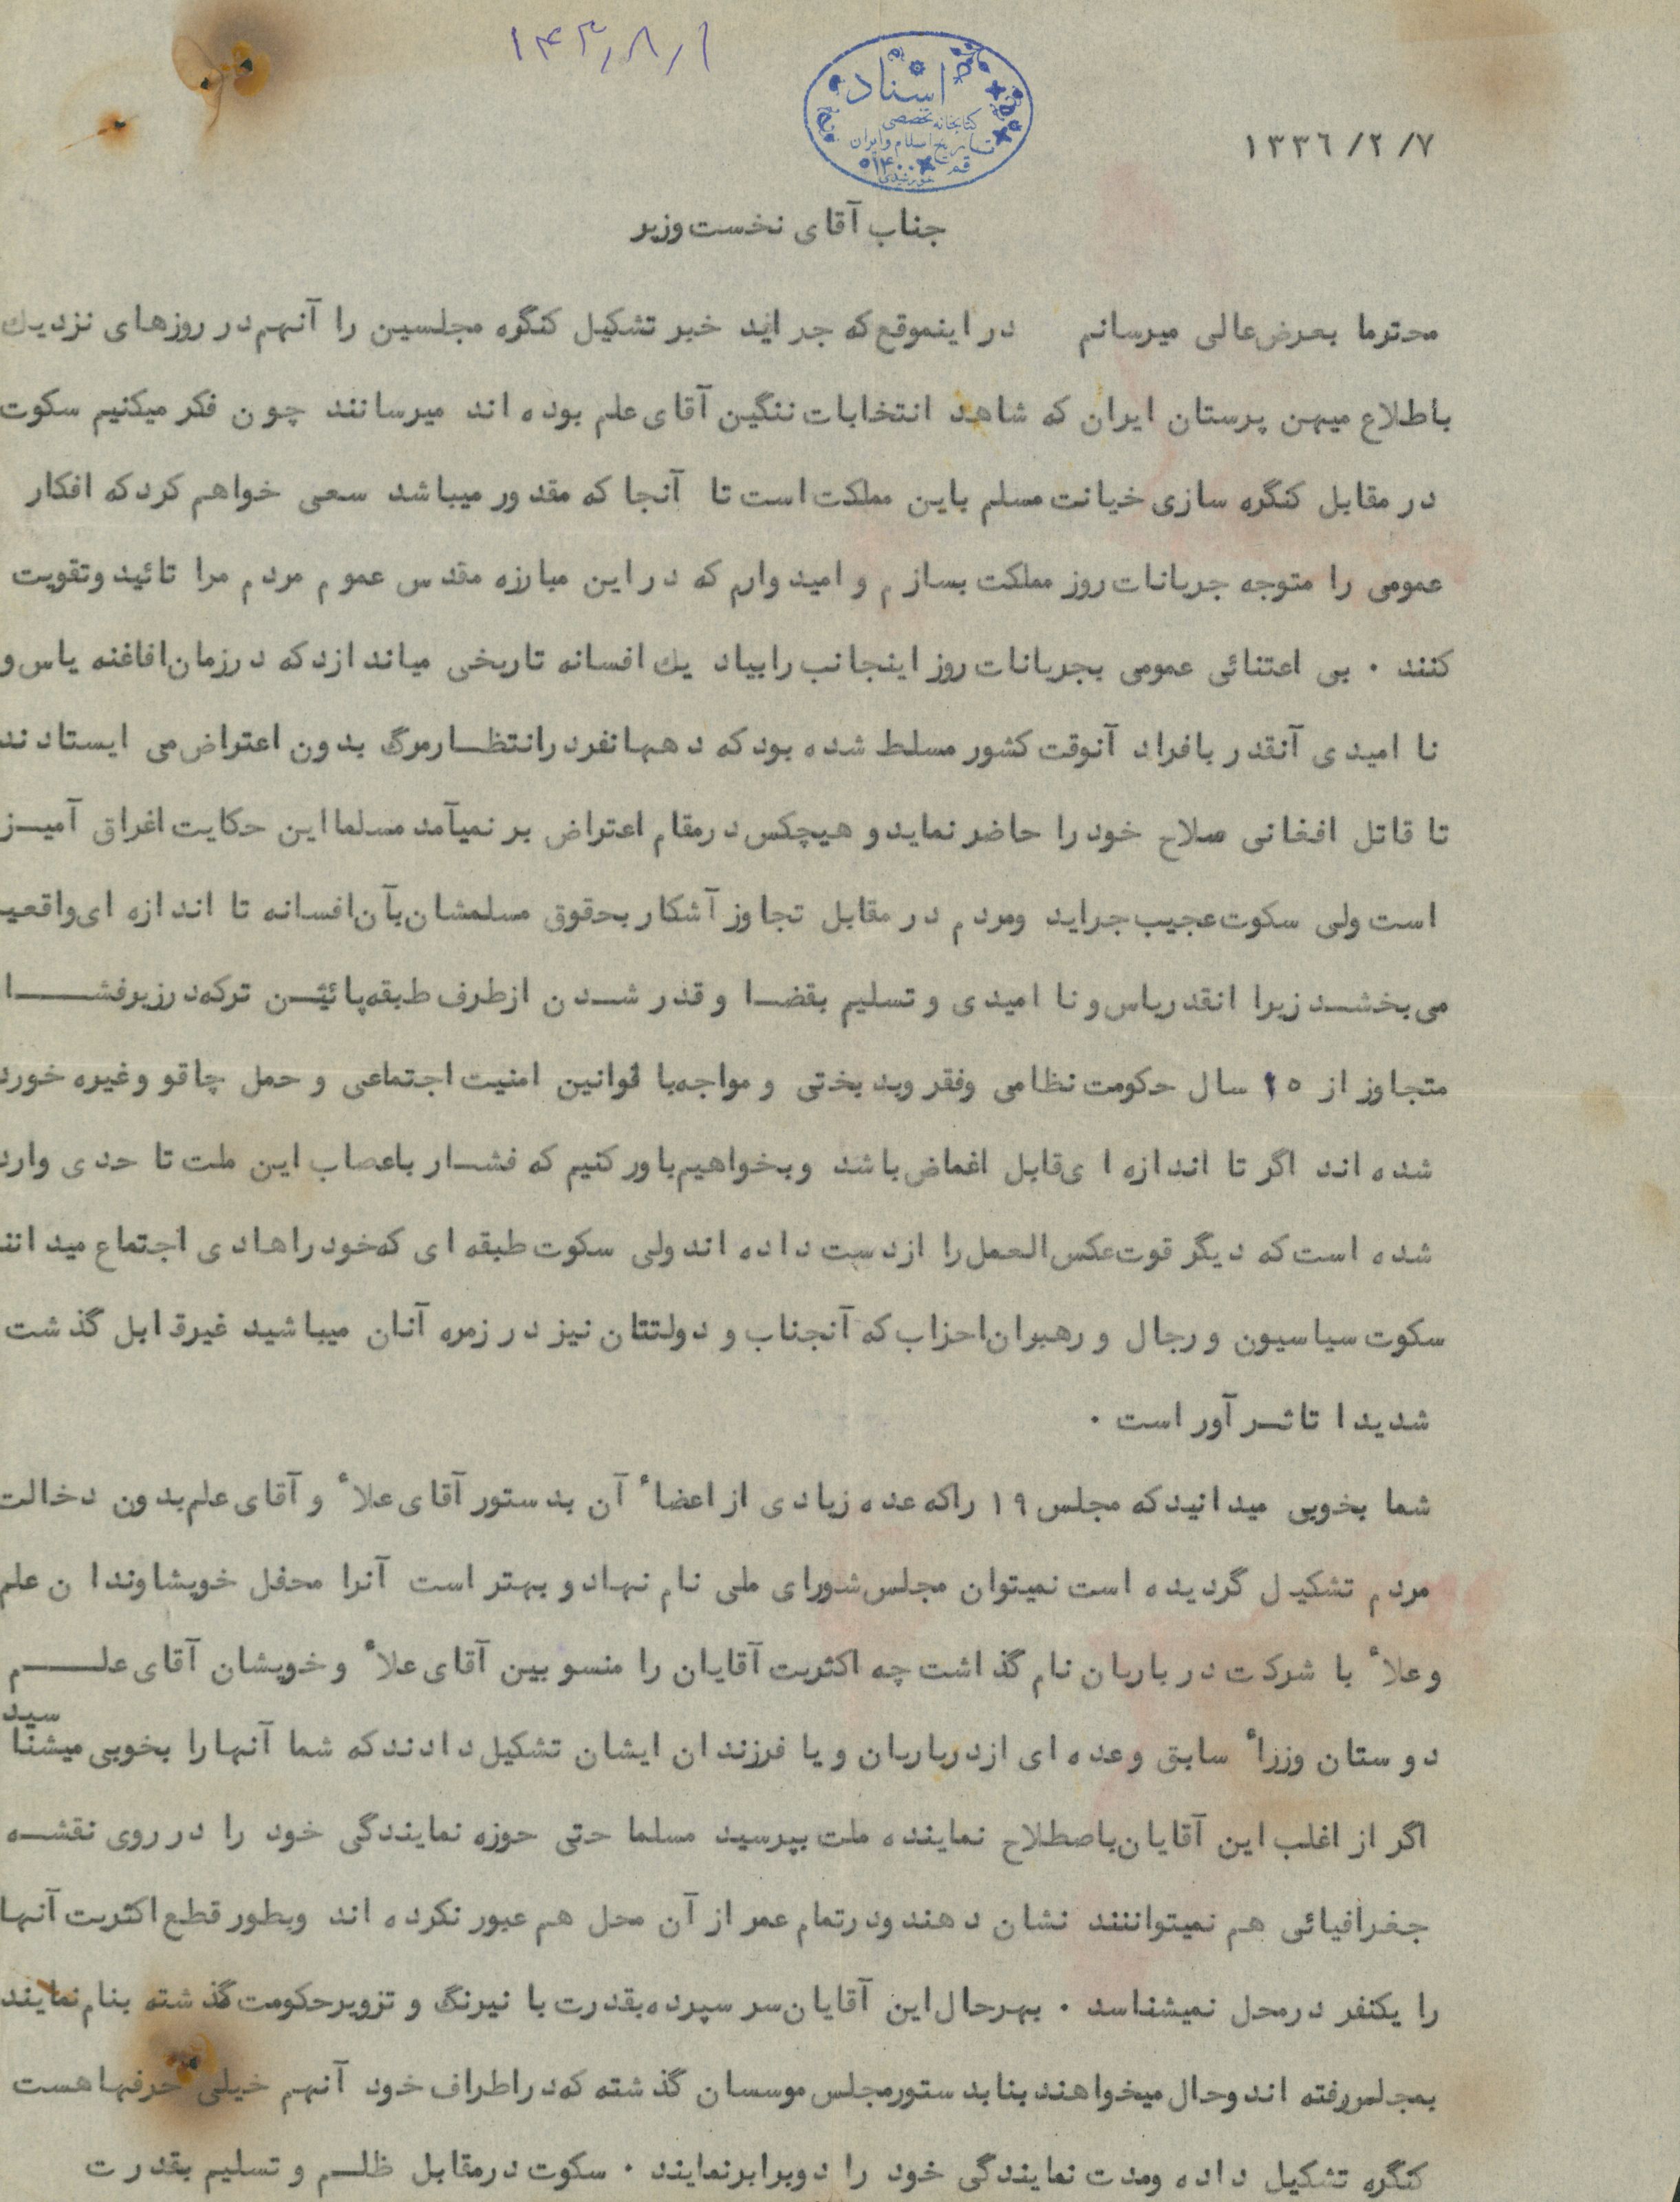 ۱۴۳٫۸٫۱
اسناد
کتابخانه تخصصی
تاریخ اسلام و ایران
قم
۱۳۳۶/۲/۷
جناب آقای نخست وزیر
محترما بعرض عالی میرسانم در اینموقع که جراید خبر تشکیل کنگره مجلسین را آنهم در روزهای نزدیك
باطلاع میهن پرستان ایران که شاهد انتخابات ننگین آقای علم بوده اند میرسانند چون فکر میکنیم سکوت
در مقابل کنگره سازی خیانت مسلم باین مملکت است تا آنجا که مقدور میباشد سعی خواهم کرد که افکار
عمومی را متوجه جریانات روز مملکت بسازم و امیدوارم که در این مبارزه مقدس عموم مردم مرا تائید و تقویت
کنند ۰ بی اعتنائی عمومی بجریانات روز اینجانب را بیاد یك افسانه تاریخی میاندازد که در زمان افاغنه یاس و
نا امیدی آنقدر بافراد آنوقت کشور مسلط شده بود که دهها نفر در انتظار مرگ بدون اعتراض می ایستادند
تا قاتل افغانی سلاح خود را حاضر نماید و هیچکس در مقام اعتراض بر نمیآمد مسلما این حکایت اغراق آمیز
است ولی سکوت عجیب جراید ومردم در مقابل تجاوز آشکار بحقوق مسلمشان بآن افسانه تا اندازه ای واقعیـ
می بخشد زیرا انقدر یاس و نا امیدی و تسلیم بقضا و قدر شدن از طرف طبقه پائین تر که در زیر فشا
متجاوز از ۱۵ سال حکومت نظامی وفقر وبدبختی و مواجه با قوانین امنیت اجتماعی و حمل چاقو و غیره خورد
شده اند اگر تا اندازه ای قابل اغماض باشد وبخواهیم باور کنیم که فشار باعصاب این ملت تا حدی وارد
شده است که دیگر قوت عکس العمل را از دست داده اند ولی سکوت طبقه ای که خود را هادی اجتماع میدانند
سکوت سیاسیون و رجال و رهبران احزاب که آنجناب و دولتتان نیز در زمره آنان میباشید غیرقابل گذشت
شدیدا تاثر آور است ۰
شما بخوبی میدانید که مجلس ۱۹ را که عده زیادی از اعضاٴ آن بدستور آقای علاٴ و آقای علم بدون دخالت
مردم تشکیل گردیده است نمیتوان مجلس شورای ملی نام نهاد و بهتر است آنرا محفل خویشاوندان علم
وعلاٴ با شرکت درباریان نام گذاشت چه اکثریت آقایان را منسوبین آقای علاٴ و خویشان آقای علم
دوستان وزراٴ سابق وعده ای از درباریان و یا فرزندان ایشان تشکیل دادند که شما آنها را بخوبی میشنا سید
اگر از اغلب این آقایان باصطلاح نماینده ملت بپرسید مسلما حتی حوزه نمایندگی خود را در روی نقشه
جغرافیائی هم نمیتواننند نشان دهند ودر تمام عمر از آن محل هم عبور نکرده اند وبطور قطع اکثریت آنها
را یکنفر در محل نمیشناسد ۰ بهرحال این آقایان سر سپرده بقدرت با نیرنگ و تزویر حکومت گذشته بنام نمایند
بمجلس رفته اند وحال میخواهند بنا بدستور مجلس موسسان گذشته که در اطراف خود آنهم خیلی حرفها هست
کنگره تشکیل داده ومدت نمایندگی خود را دو برابر نمایند ۰ سکوت در مقابل ظلم و تسلیم بقدرت